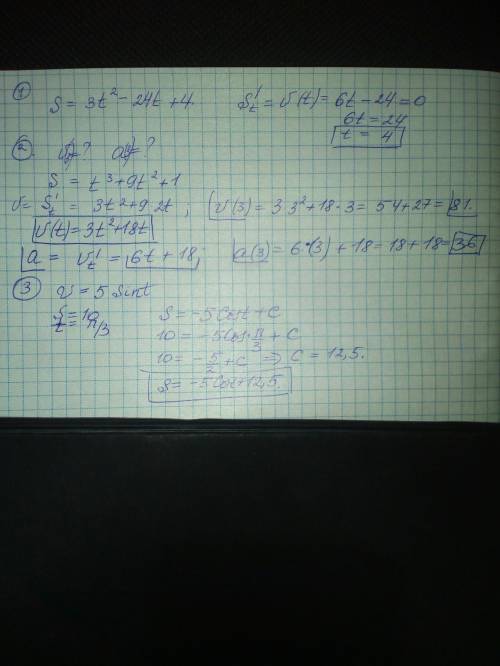 1 S = 3t² - 24t + 4. S't = v(t) = 6t - 24 = 0
6t = 24
t = 4
2. v(t) = ? a(t) = ?
S = t³ + 9t² + 1
v = S't = 3t² + 9·2t ; v(3) = 3·3² + 18·3 = 54 + 27 = 81.
v(t) = 3t² + 18t
a = v't = 6t + 18; a(3) = 6·(3) + 18 = 18 + 18 = 36
3 v = 5 Sint
S = 10 S = -5Cost + C
t = π/3 10 = -5Cos·π/3 + C
10 = -5/2 + C ⇒ C = 12,5.
S = -5Cost + 12,5.